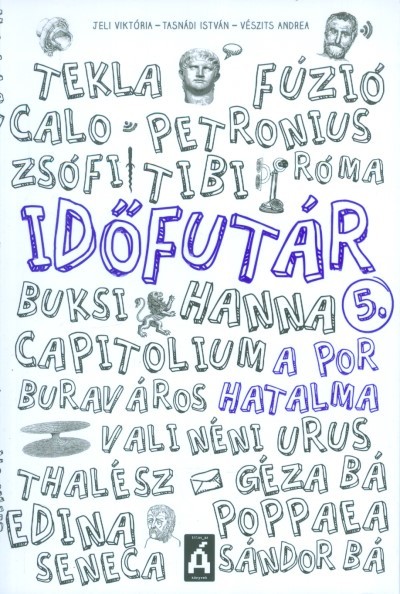 JELI VIKTÓRIA – TASNÁDI ISTVÁN – VÉSZITS ANDREA
TEKLA FÚZIÓ
CALO PETRONIUS
ZSÓFI TIBI RÓMA
IDŐFUTÁR
BUKSI HANNA 5.
CAPITOLIUM A POR
BURAVÁROS HATALMA
VALI NÉNI URUS
THALÉSZ GÉZA BÁ
EDINA POPPAEA
SENECA SÁNDOR BÁ